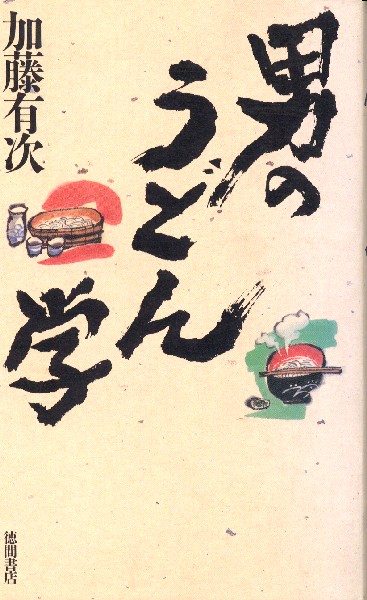 男の
うどん
学
加藤有次
徳間書店